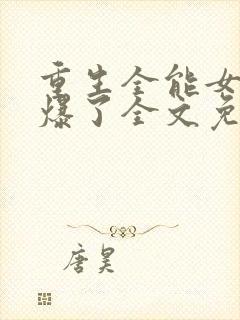 重生全能女
爆了全文免
唐昊